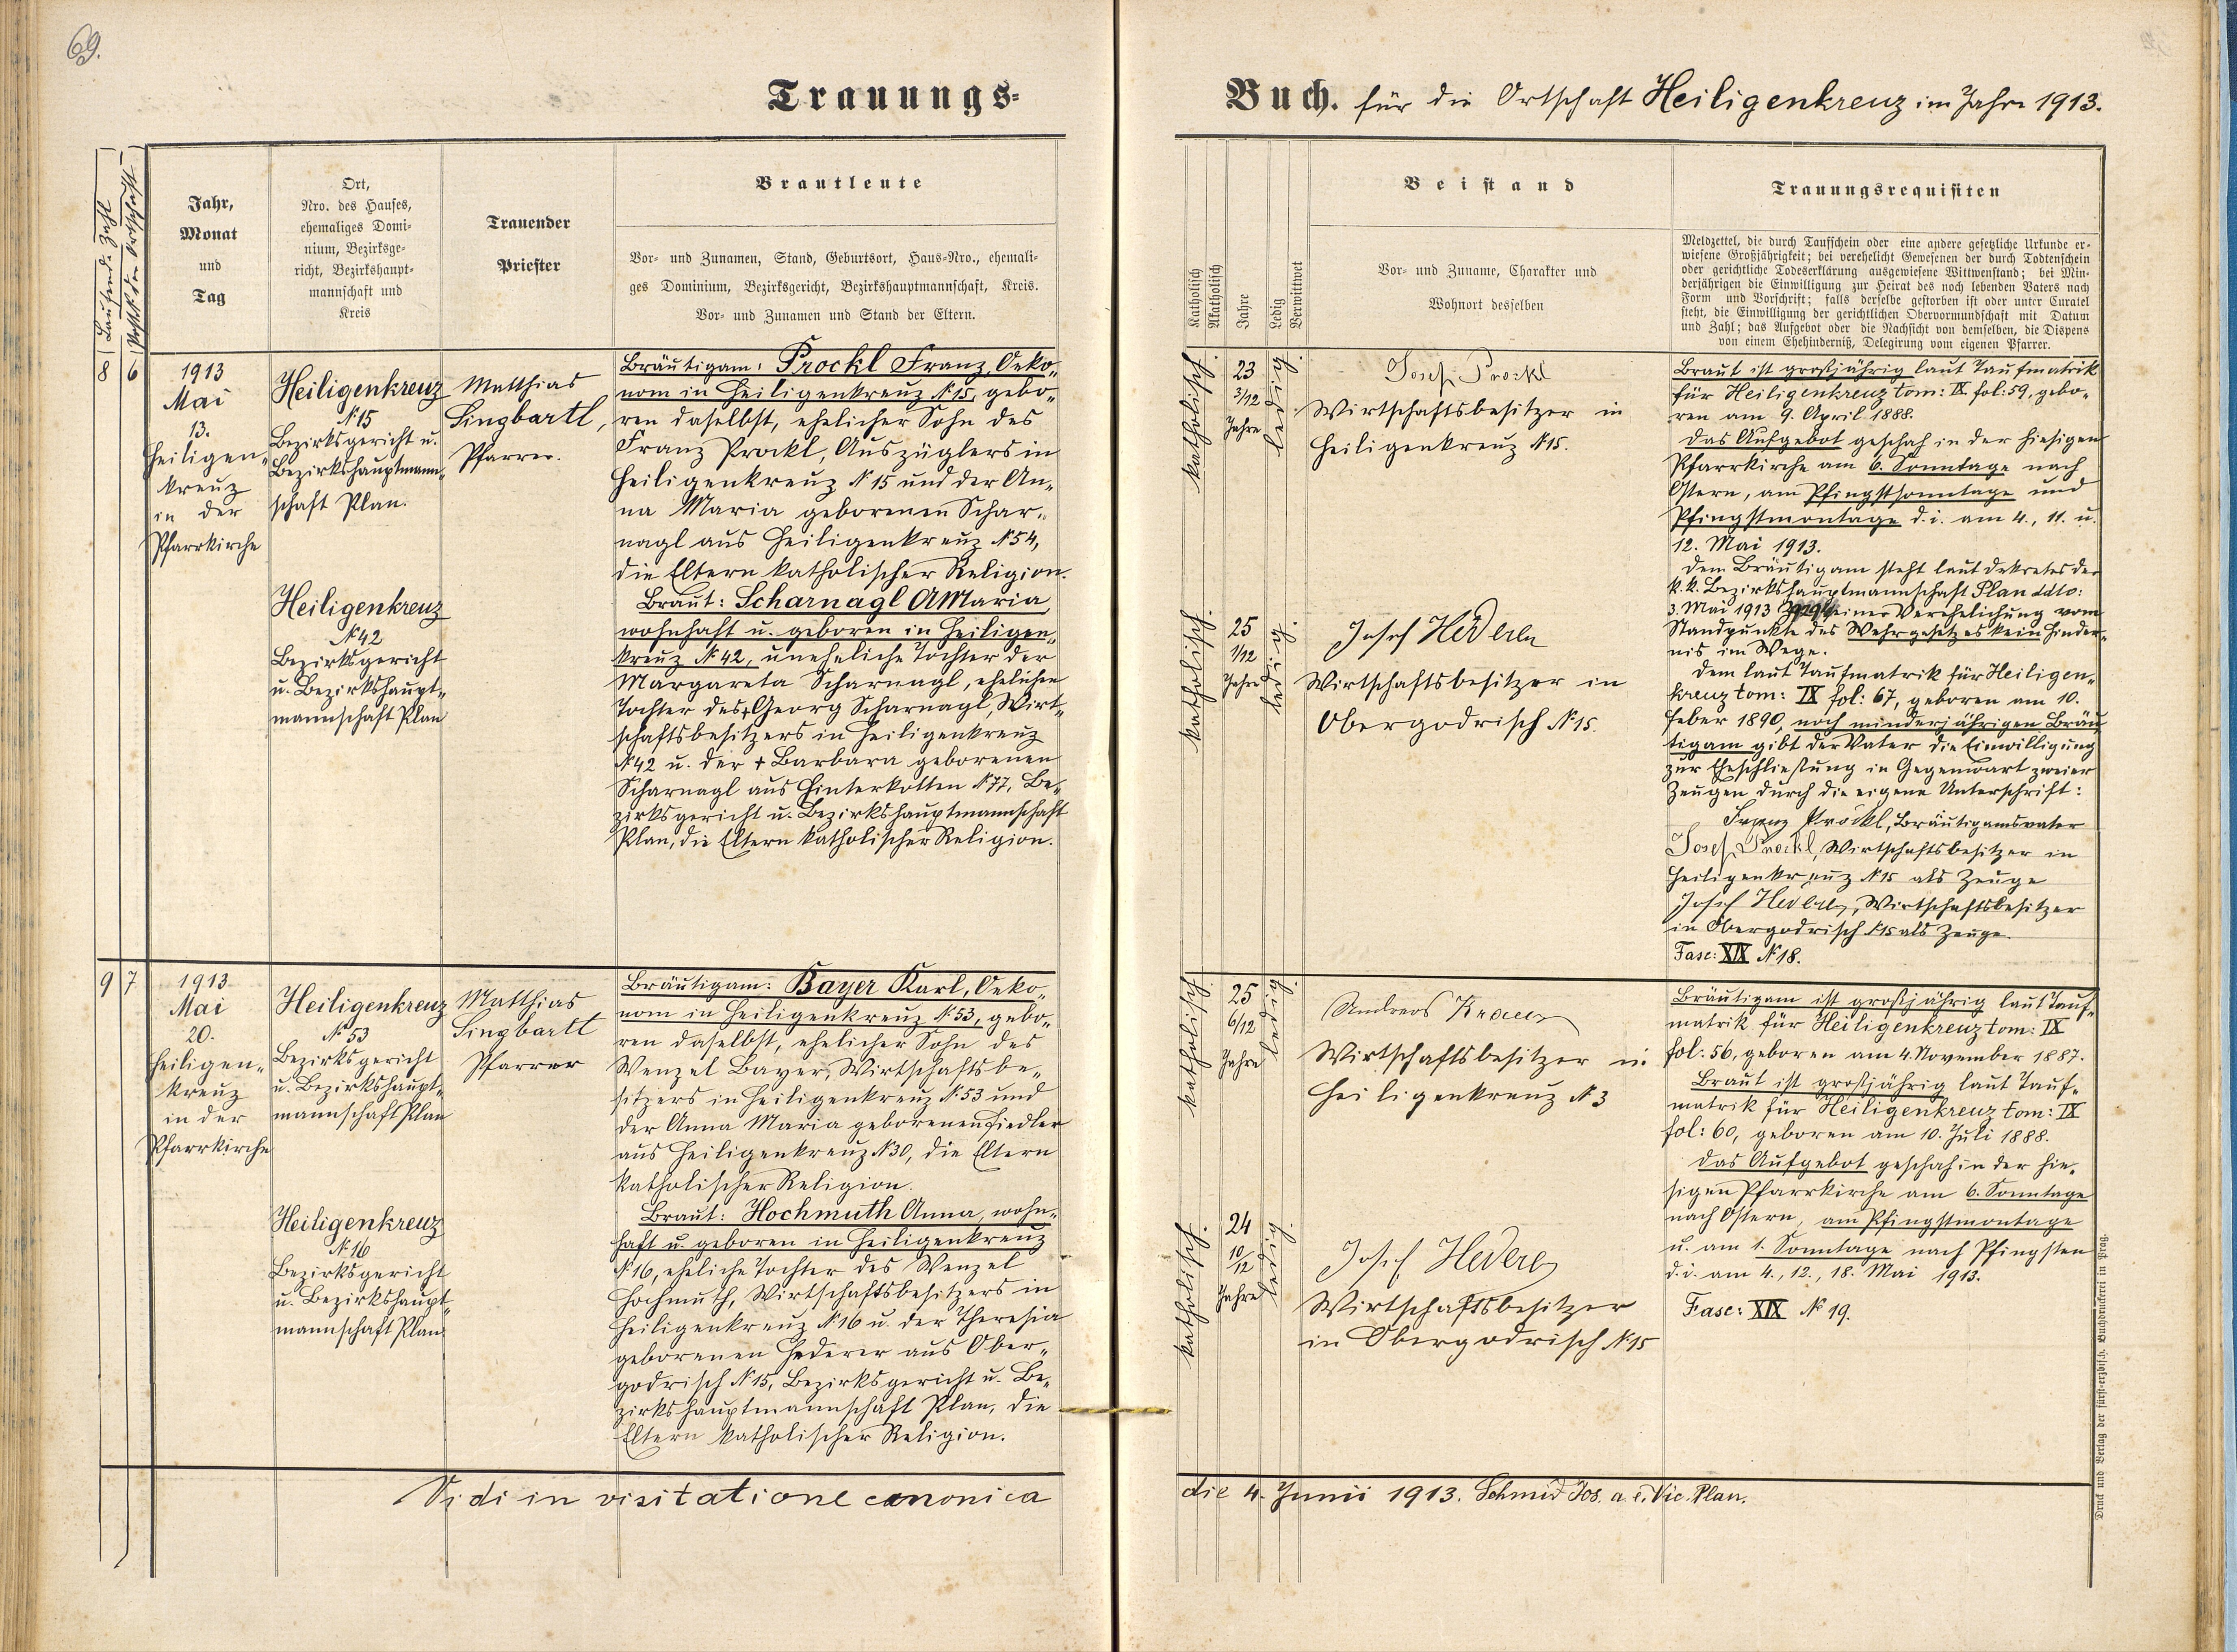 69.
Trauungs-
Buch. für die Ortschaft Heiligenkreuz im Jahre 1913.
Laufende Zahl
Jahr,
Monat
und
Tag
Ort,
Nro. des Hauses,
ehemaliges Domi-
nium, Bezirksge-
richt, Bezirkshaupt-
mannschaft und
Kreis
Trauender
Priester
Brautleute
Vor- und Zunamen, Stand, Geburtsort, Haus-Nro., ehemali-
ges Dominium, Bezirksgericht, Bezirkshauptmannschaft, Kreis.
Vor- und Zunamen und Stand der Eltern.
Katholisch
Akatholisch
Jahre
Ledig
Verwittwet
Beistand
Vor- und Zuname, Charakter und
Wohnort desselben
Trauungsrequisiten
Meldzettel, die durch Taufschein oder eine andere gesetzliche Urkunde er-
wiesene Großjährigkeit; bei verehelicht Gewesenen der durch Todtenschein
oder gerichtliche Todeserklärung ausgewiesene Wittwenstand; bei Min-
derjährigen die Einwilligung zur Heirat des noch lebenden Vaters nach
Form und Vorschrift; falls derselbe gestorben ist oder unter Curatel
steht, die Einwilligung der gerichtlichen Obervormundschaft mit Datum
und Zahl; das Aufgebot oder die Nachsicht von demselben, die Dispens
von einem Ehehinderniß, Delegirung vom eigenen Pfarrer.
8
6
1913
Mai
13.
Heiligen-
kreuz
in der
Pfarrkirche
Heiligenkreuz
N. 15
Bezirksgericht u.
Bezirkshauptmann-
schaft Plan.
Heiligenkreuz
N. 42
Bezirksgericht
u. Bezirkshaupt-
mannschaft Plan
Matthias
Singbartl,
Pfarrer.
Bräutigam: Prockl Franz, Oeko-
nom in Heiligenkreuz N. 15, gebo-
ren daselbst, ehelicher Sohn des
Franz Prockl, Auszüglers in
Heiligenkreuz N 15 und der An-
na Maria geborenen Schar-
nagl aus Heiligenkreuz N. 54,
die Eltern katholischer Religion.
Braut: Scharnagl AMaria,
wohnhaft u. geboren in Heiligen-
kreuz N. 42, uneheliche Tochter der
Margareta Scharnagl, ehelichen
Tochter des + Georg Scharnagl, Wirt-
schaftsbesitzers in Heiligenkreuz
N. 42 u. der + Barbara geborenen
Scharnagl aus Hinterkotten N. 77, Be-
zirksgericht u. Bezirkshauptmannschaft
Plan, die Eltern katholischer Religion.
katholisch.
23
3/12
Jahre
ledig.
Josef Prockl
Wirtschaftsbesitzer in
Heiligenkreuz N. 15.
katholisch.
25
1/12
Jahre
ledig.
Josef Hederer
Wirtschaftsbesitzer in
Obergodrisch N. 15.
Braut ist großjährig laut Taufmatrik
für Heiligenkreuz tom: IX. fol: 59, gebo-
ren am 9. April 1888.
Das Aufgebot geschah in der hiesigen
Pfarrkirche am 6. Sonntage nach
Ostern, am Pfingstsonntage und
Pfingstmontage d. i. am 4., 11. u.
12. Mai 1913.
Dem Bräutigam steht laut Dekretes der
k. k. Bezirkshauptmannschaft Plan ddto:
3. Mai 1913 einer Verehelichung vom
Standpunkte des Wehrgesetzes kein Hinder-
nis im Wege.
Dem laut Taufmatrik für Heiligen-
kreuz tom: IX fol: 67, geboren am 10.
Feber 1890, noch minderjährigen Bräu-
tigam gibt der Vater die Einwilligung
zur Eheschließung in Gegenwart zweier
Zeugen durch die eigene Unterschrift:
Franz Prockl, Bräutigamsvater
Josef Prockl, Wirtschaftsbesitzer in
Heiligenkreuz N 15 als Zeuge
Josef Hederer, Wirtschaftsbesitzer
in Obergodrisch N 15 als Zeuge.
Fasc: XIX N. 18.
9
7
1913
Mai
20.
Heiligen-
kreuz
in der
Pfarrkirche
Heiligenkreuz
N. 53
Bezirksgericht
u. Bezirkshaupt-
mannschaft Plan
Heiligenkreuz
N. 16
Bezirksgericht
u. Bezirkshaupt-
mannschaft Plan
Matthias
Singbartl
Pfarrer
Bräutigam: Bayer Karl, Oeko-
nom in Heiligenkreuz N. 53, gebo-
ren daselbst, ehelicher Sohn des
Wenzel Bayer, Wirtschaftsbe-
sitzers in Heiligenkreuz N. 53 und
der Anna Maria geborenen Fiedler
aus Heiligenkreuz N 30, die Eltern
katholischer Religion.
Braut: Hochmuth Anna, wohn-
haft u. geboren in Heiligenkreuz
N. 16, eheliche Tochter des Wenzel
Hochmuth, Wirtschaftsbesitzers in
Heiligenkreuz N. 16 u. der Theresia
geborenen Hederer aus Ober-
godrisch N 15, Bezirksgericht u. Be-
zirkshauptmannschaft Plan, die
Eltern katholischer Religion.
katholisch.
25
6/12
Jahre
ledig.
Andreas Kraus
Wirtschaftsbesitzer in
Heiligenkreuz N. 3
katholisch.
24
10/12
Jahre
ledig.
Josef Hederer
Wirtschaftsbesitzer
in Obergodrisch N. 15
Bräutigam ist großjährig laut Tauf-
matrik für Heiligenkreuz tom: IX
fol: 56, geboren am 4. November 1887.
Braut ist großjährig laut Tauf-
matrik für Heiligenkreuz tom: IX
fol: 60, geboren am 10. Juli 1888.
Das Aufgebot geschah in der hie-
sigen Pfarrkirche am 6. Sonntage
nach Ostern, am Pfingstmontage
u. am 1. Sonntage nach Pfingsten
d. i. am 4., 12., 18. Mai 1913.
Fasc: XIX N. 19.
Vidi in visitatione canonica
die 4. Junii 1913. Schmid Jos. a. e. Vic. Plan.
Druck und Verlag der fürst-erzbisch. Buchdruckerei in Prag.